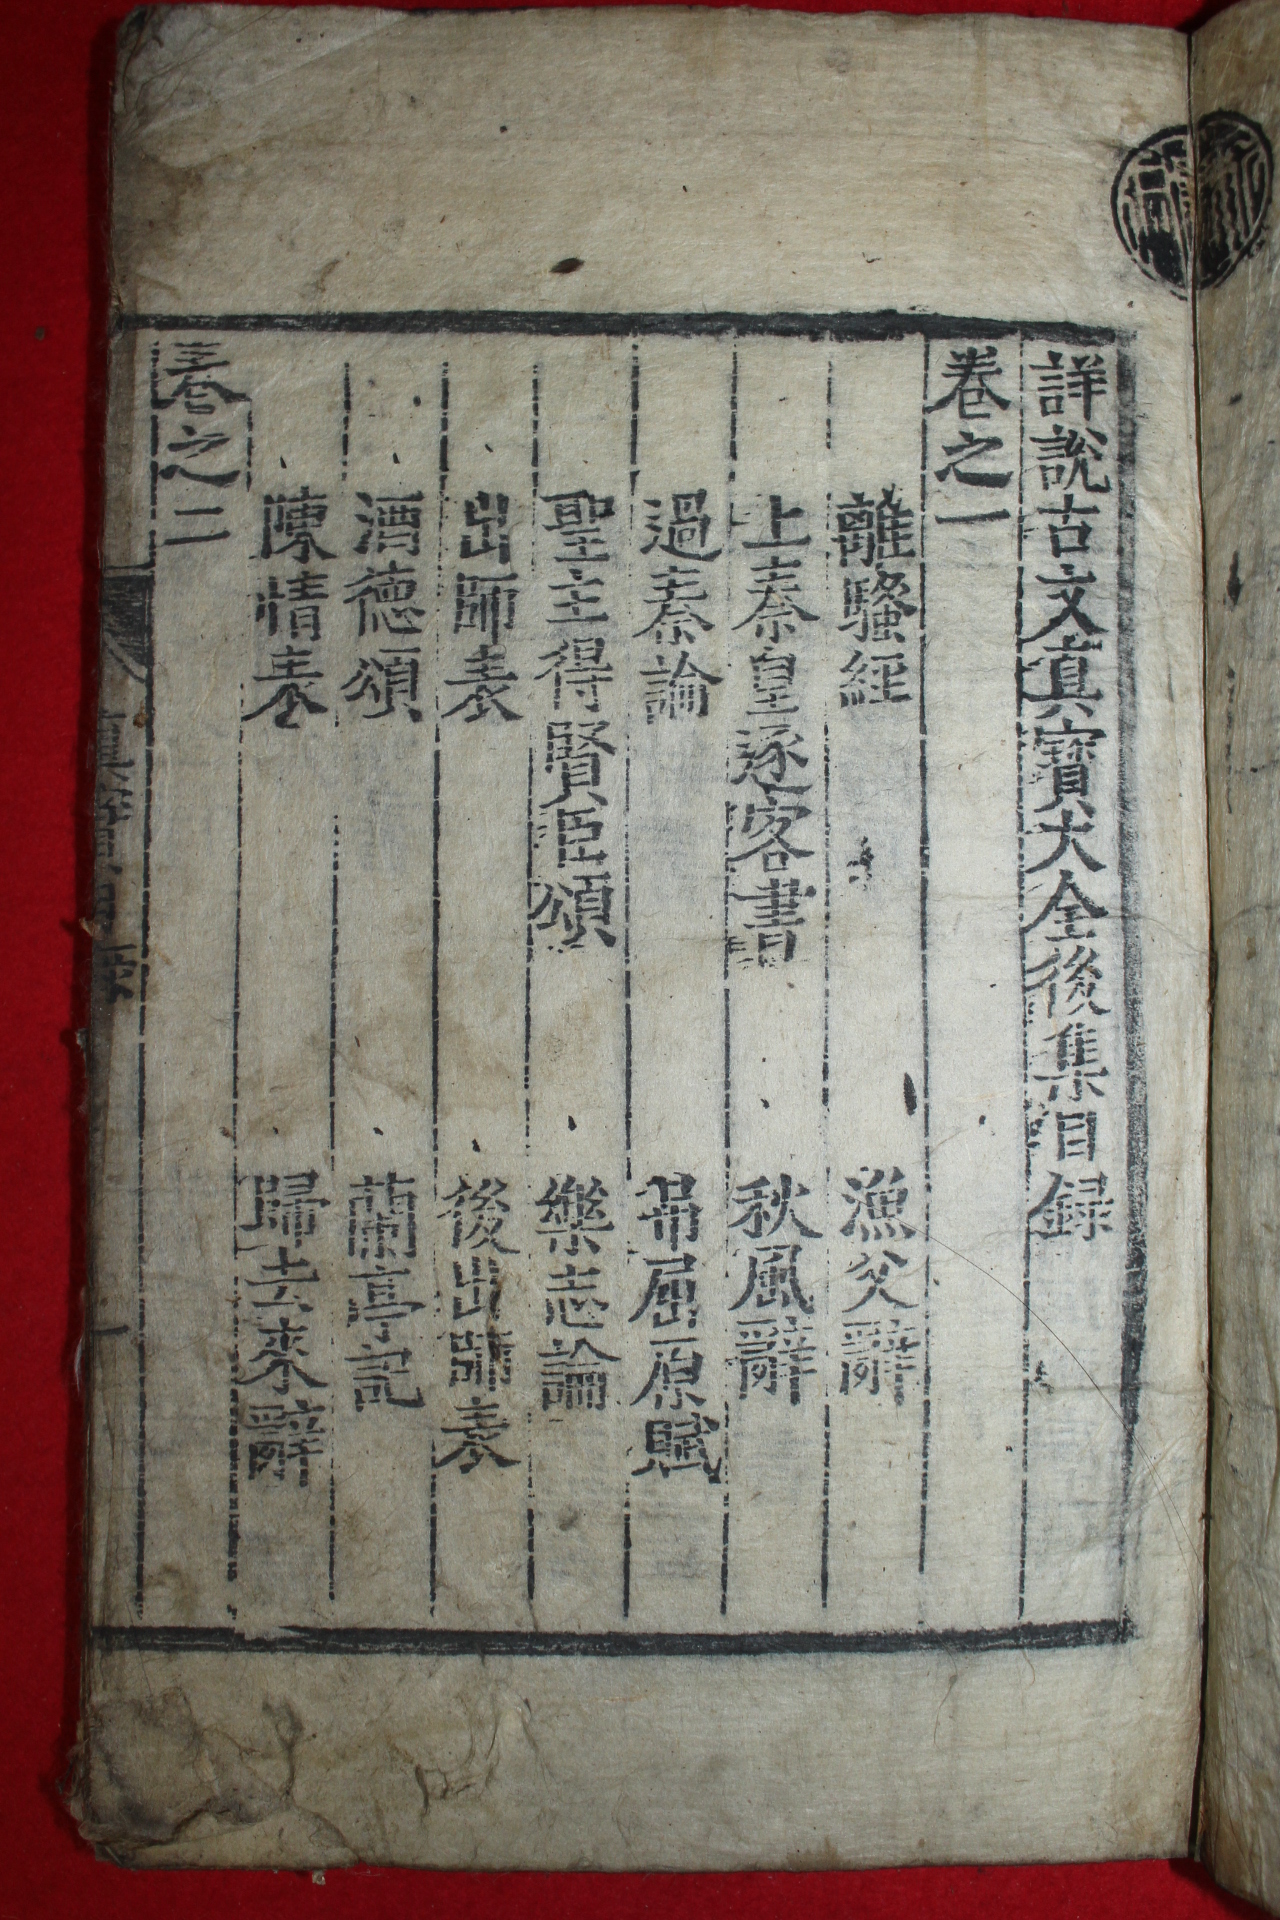 詳說古文真寶大全後集目録
卷之一
離騷經 漁父辭
上秦皇逐客書 秋風辭
過秦論 吊屈原賦
聖主得賢臣頌 樂志論
出師表 後出師表
酒德頌 蘭亭記
陳情表 歸去來辭
卷之二
真寶目録
一